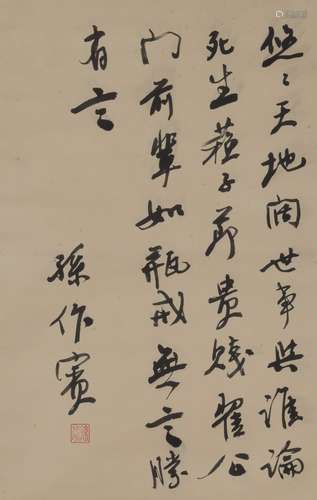 悠〻天地闊世事與誰論
死生蘇子節貴賤翟公
门前輩如瓶戒無言勝
有言
孫作賓